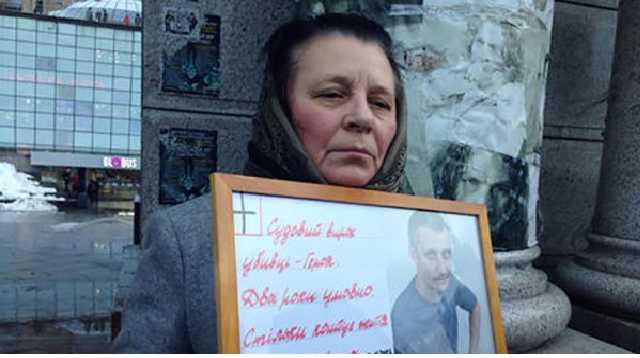 GLOBUS
Судовий вирок
убивці - Герега.
Два роки умовно.
Скільки коштує життя